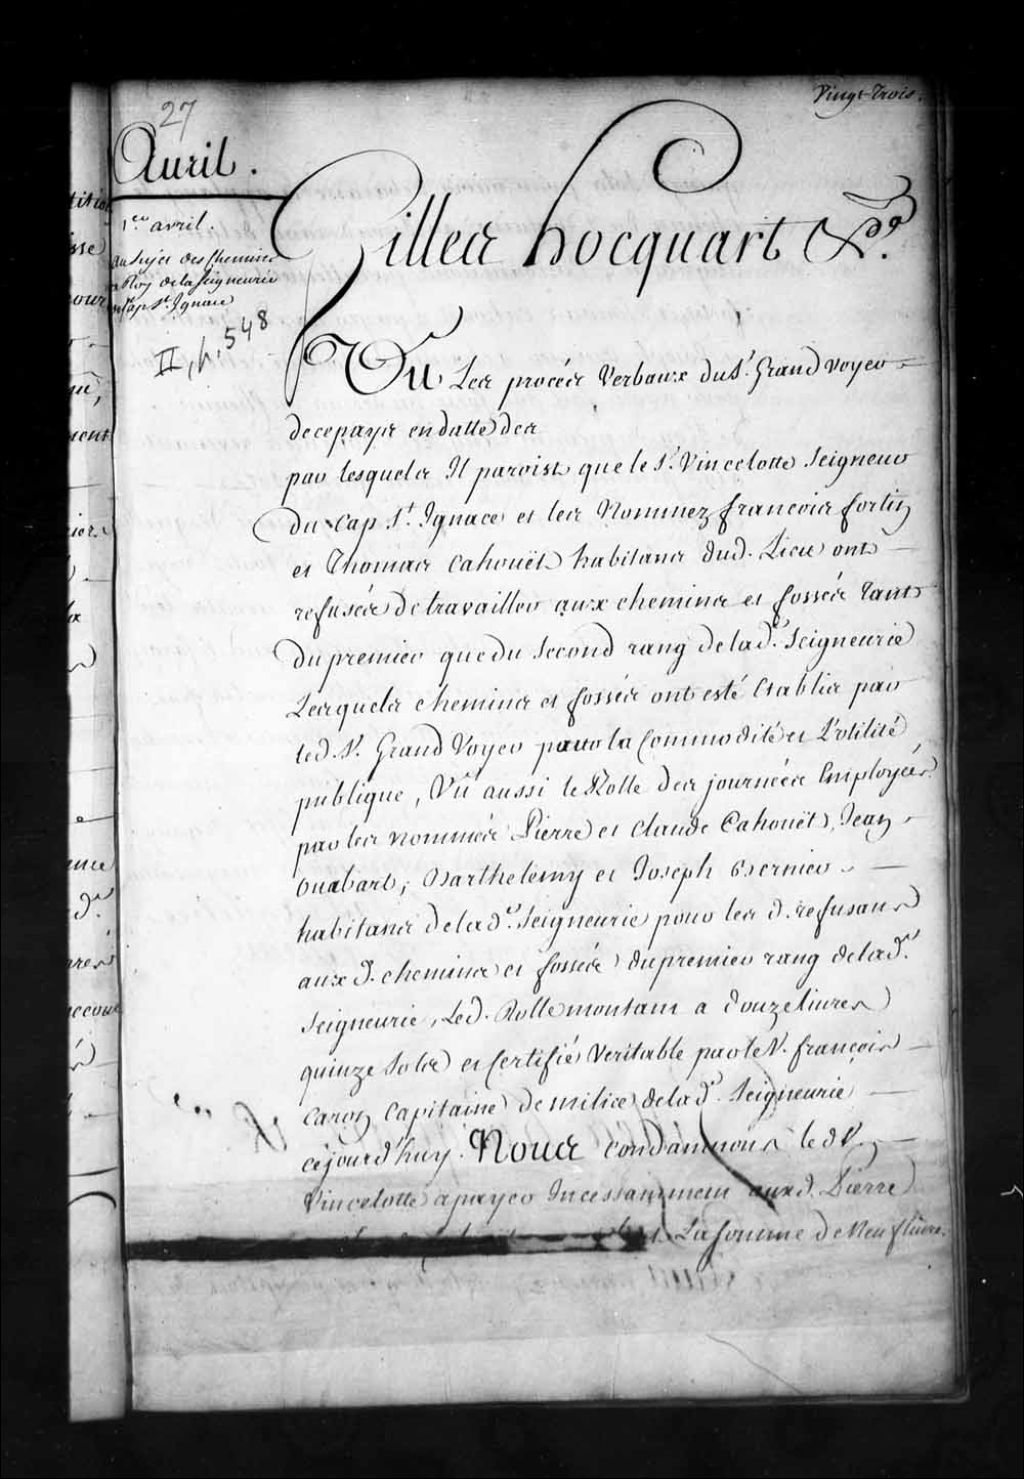 Vingt-Trois.
27
Avril.
1er avril.
au sujet des chemins
du Roy de la seigneurie
du Cap St. Ignace
II, p. 548
Gilles hocquart &ca.
Vu Les procés Verbaux du Sr. Grand voyer
de ce pays en datte des
par lesquels Il paroist que le Sr. Vincelotte Seigneur
du Cap St. Ignace et les Nommez francois fortin
et Thomas Cahouët habitans dud. Lieu ont
refusés de travailler aux chemins et fossés tant
du premier que du second rang de lad. Seigneurie
Lesquels chemins et fossés ont esté Etablis par
led. Sr. Grand Voyer pour la Commodité et L'utilité
publique, Vû aussi le Rolle des journées Employées
par les nommés Pierre et Claude Cahouët, Jean
Ouabart, Barthelemy et Joseph Bernier
habitans de lad. Seigneurie pour les d. refusans
aux d. chemins et fossés du premier rang de lad.
Seigneurie, Led. Rolle montant a douze livres
quinze sols et Certifié Veritable par le N. françois
Caron Capitaine de milice de lad. Seigneurie
cejourd'huy. Nous Condamnons led. Sr.
Vincelotte a payer Incessamment auxd. Pierre
La somme de Neuf livres